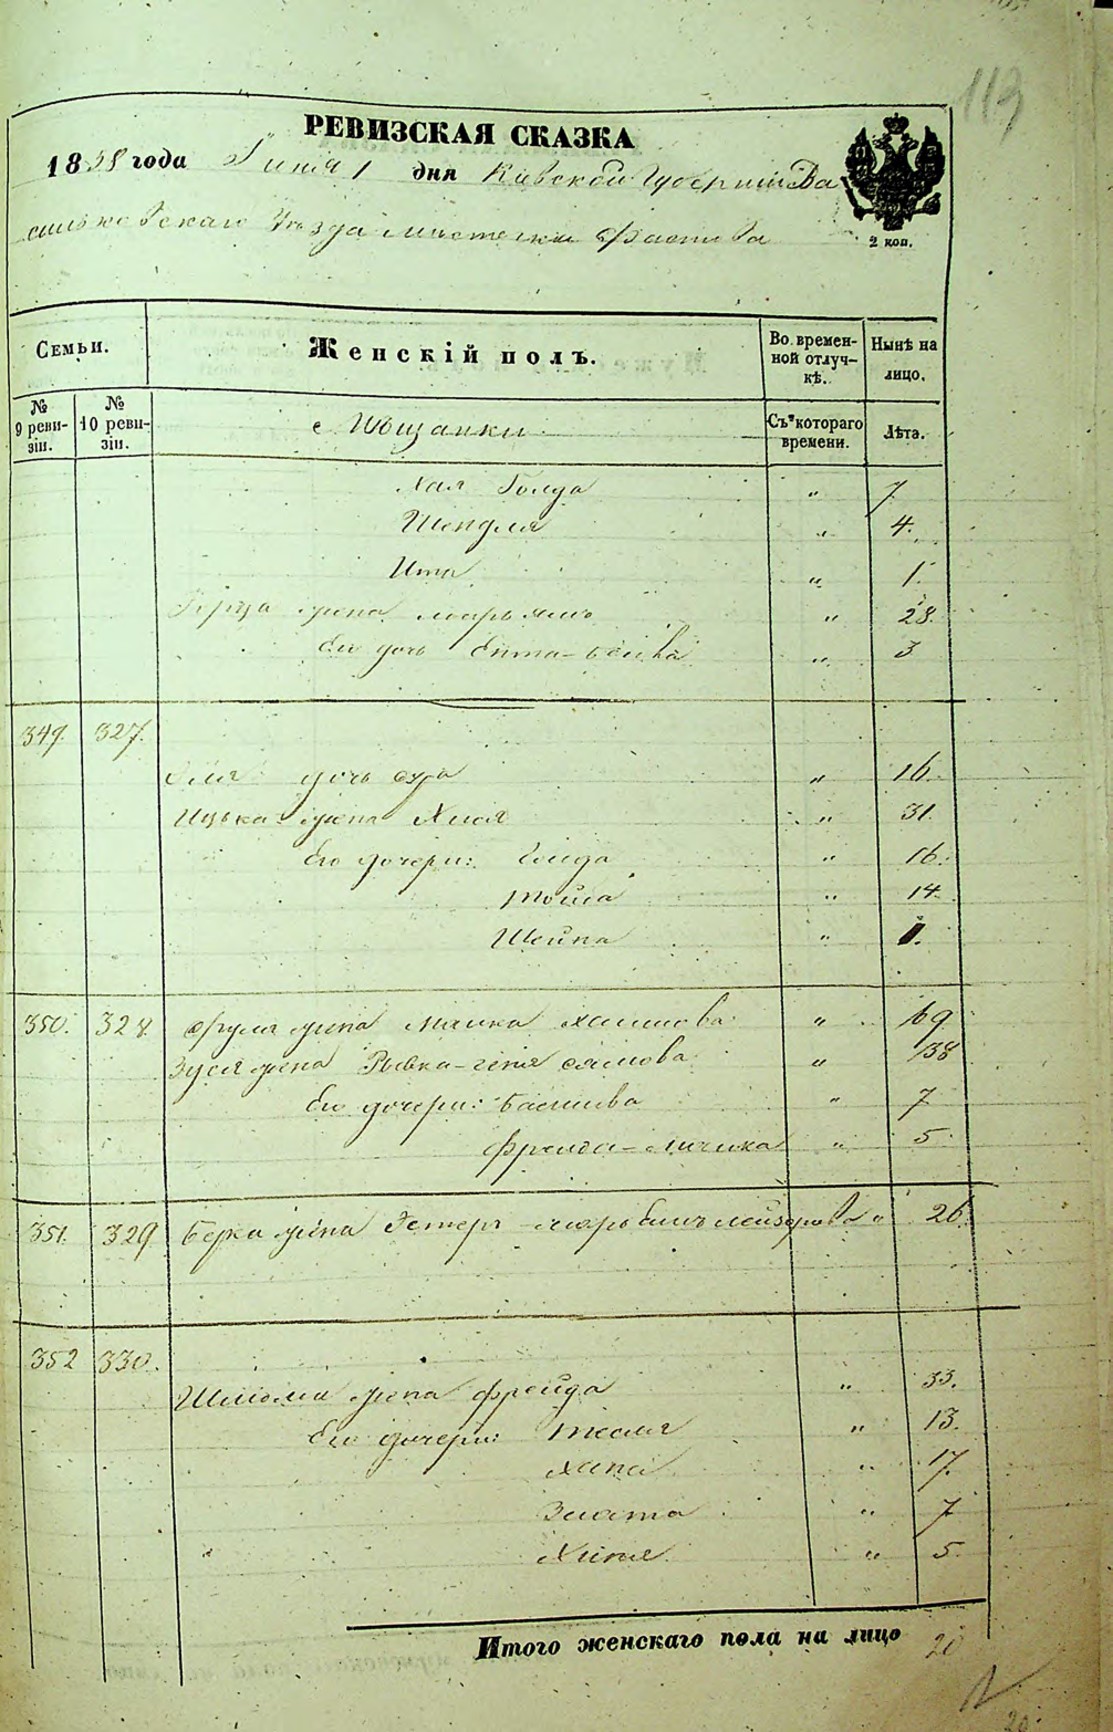 119
РЕВИЗСКАЯ СКАЗКА
1858 года Іюня 1 дня Кіевской Губерніи Ва
сильковскаго Уѣзда мѣстечка Фастова
2 коп.
Семьи. Женскій полъ. Во времен-ной отлуч-кѣ. Нынѣ на лицо.
№ 9 реви-зіи. № 10 реви-зіи. Мѣщанки Съ котораго времени. Лѣта.
Хая Голда " 7
Шендля " 4.
Ита " 1.
жена Марьямъ " 28.
Его дочь Ента-Бейла " 3
349. 327.
дочь Сура " 16.
Ицька жена Хися " 31.
Его дочери: Голда " 16.
" 14.
Шейна " 1.
350. 328 жена Малка Хаимова " 69
Зуся жена Рывка- " 38
Его дочери: Басшива " 7
Фрейда- " 5.
351. 329 Берка жена Эстеръ- Лейзерова " 26.
352 330.
Шлиома жена Фрейда " 33.
Его дочери: " 13.
Хана " 17.
Злота " 7
" 5.
Итого женскаго пола на лицо 20
20.